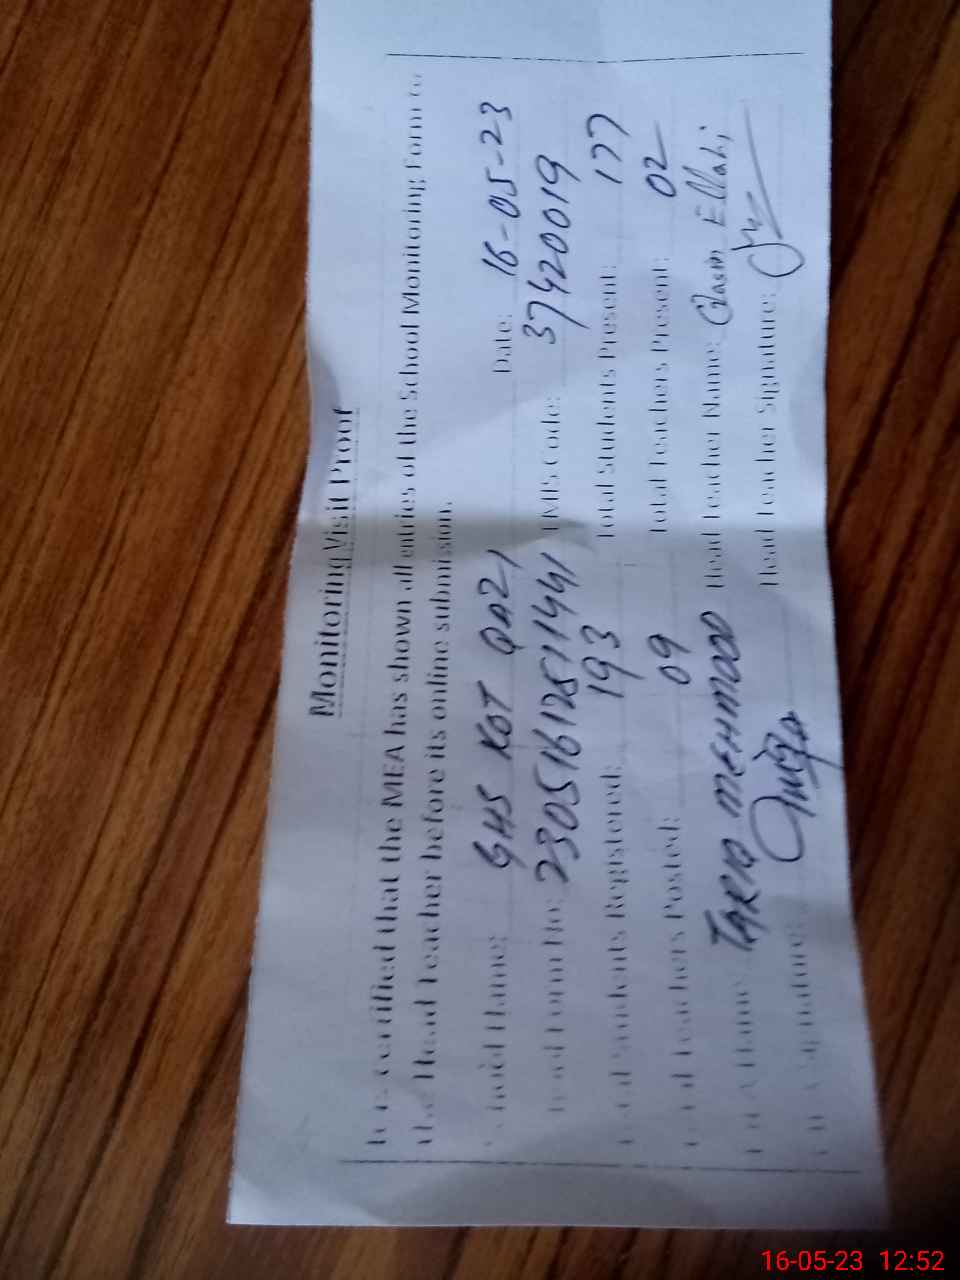 Monitoring Visit Proof
It is certified that the MEA has shown all entries of the School Monitoring Form to
the Head Teacher before its online submission.
School Name: GHS KOT QAZI Date: 16-05-23
Form No: 230516128511441 EMIS Code: 37420019
Total Students Registered: 193 Total Students Present: 177
Total Teachers Posted: 09 Total Teachers Present: 02
MEA Name TARIQ MEHMOOD Head Teacher Name: Qasim Ellahi
MEA Signature: Head Teacher Signature:
16-05-23 12:52